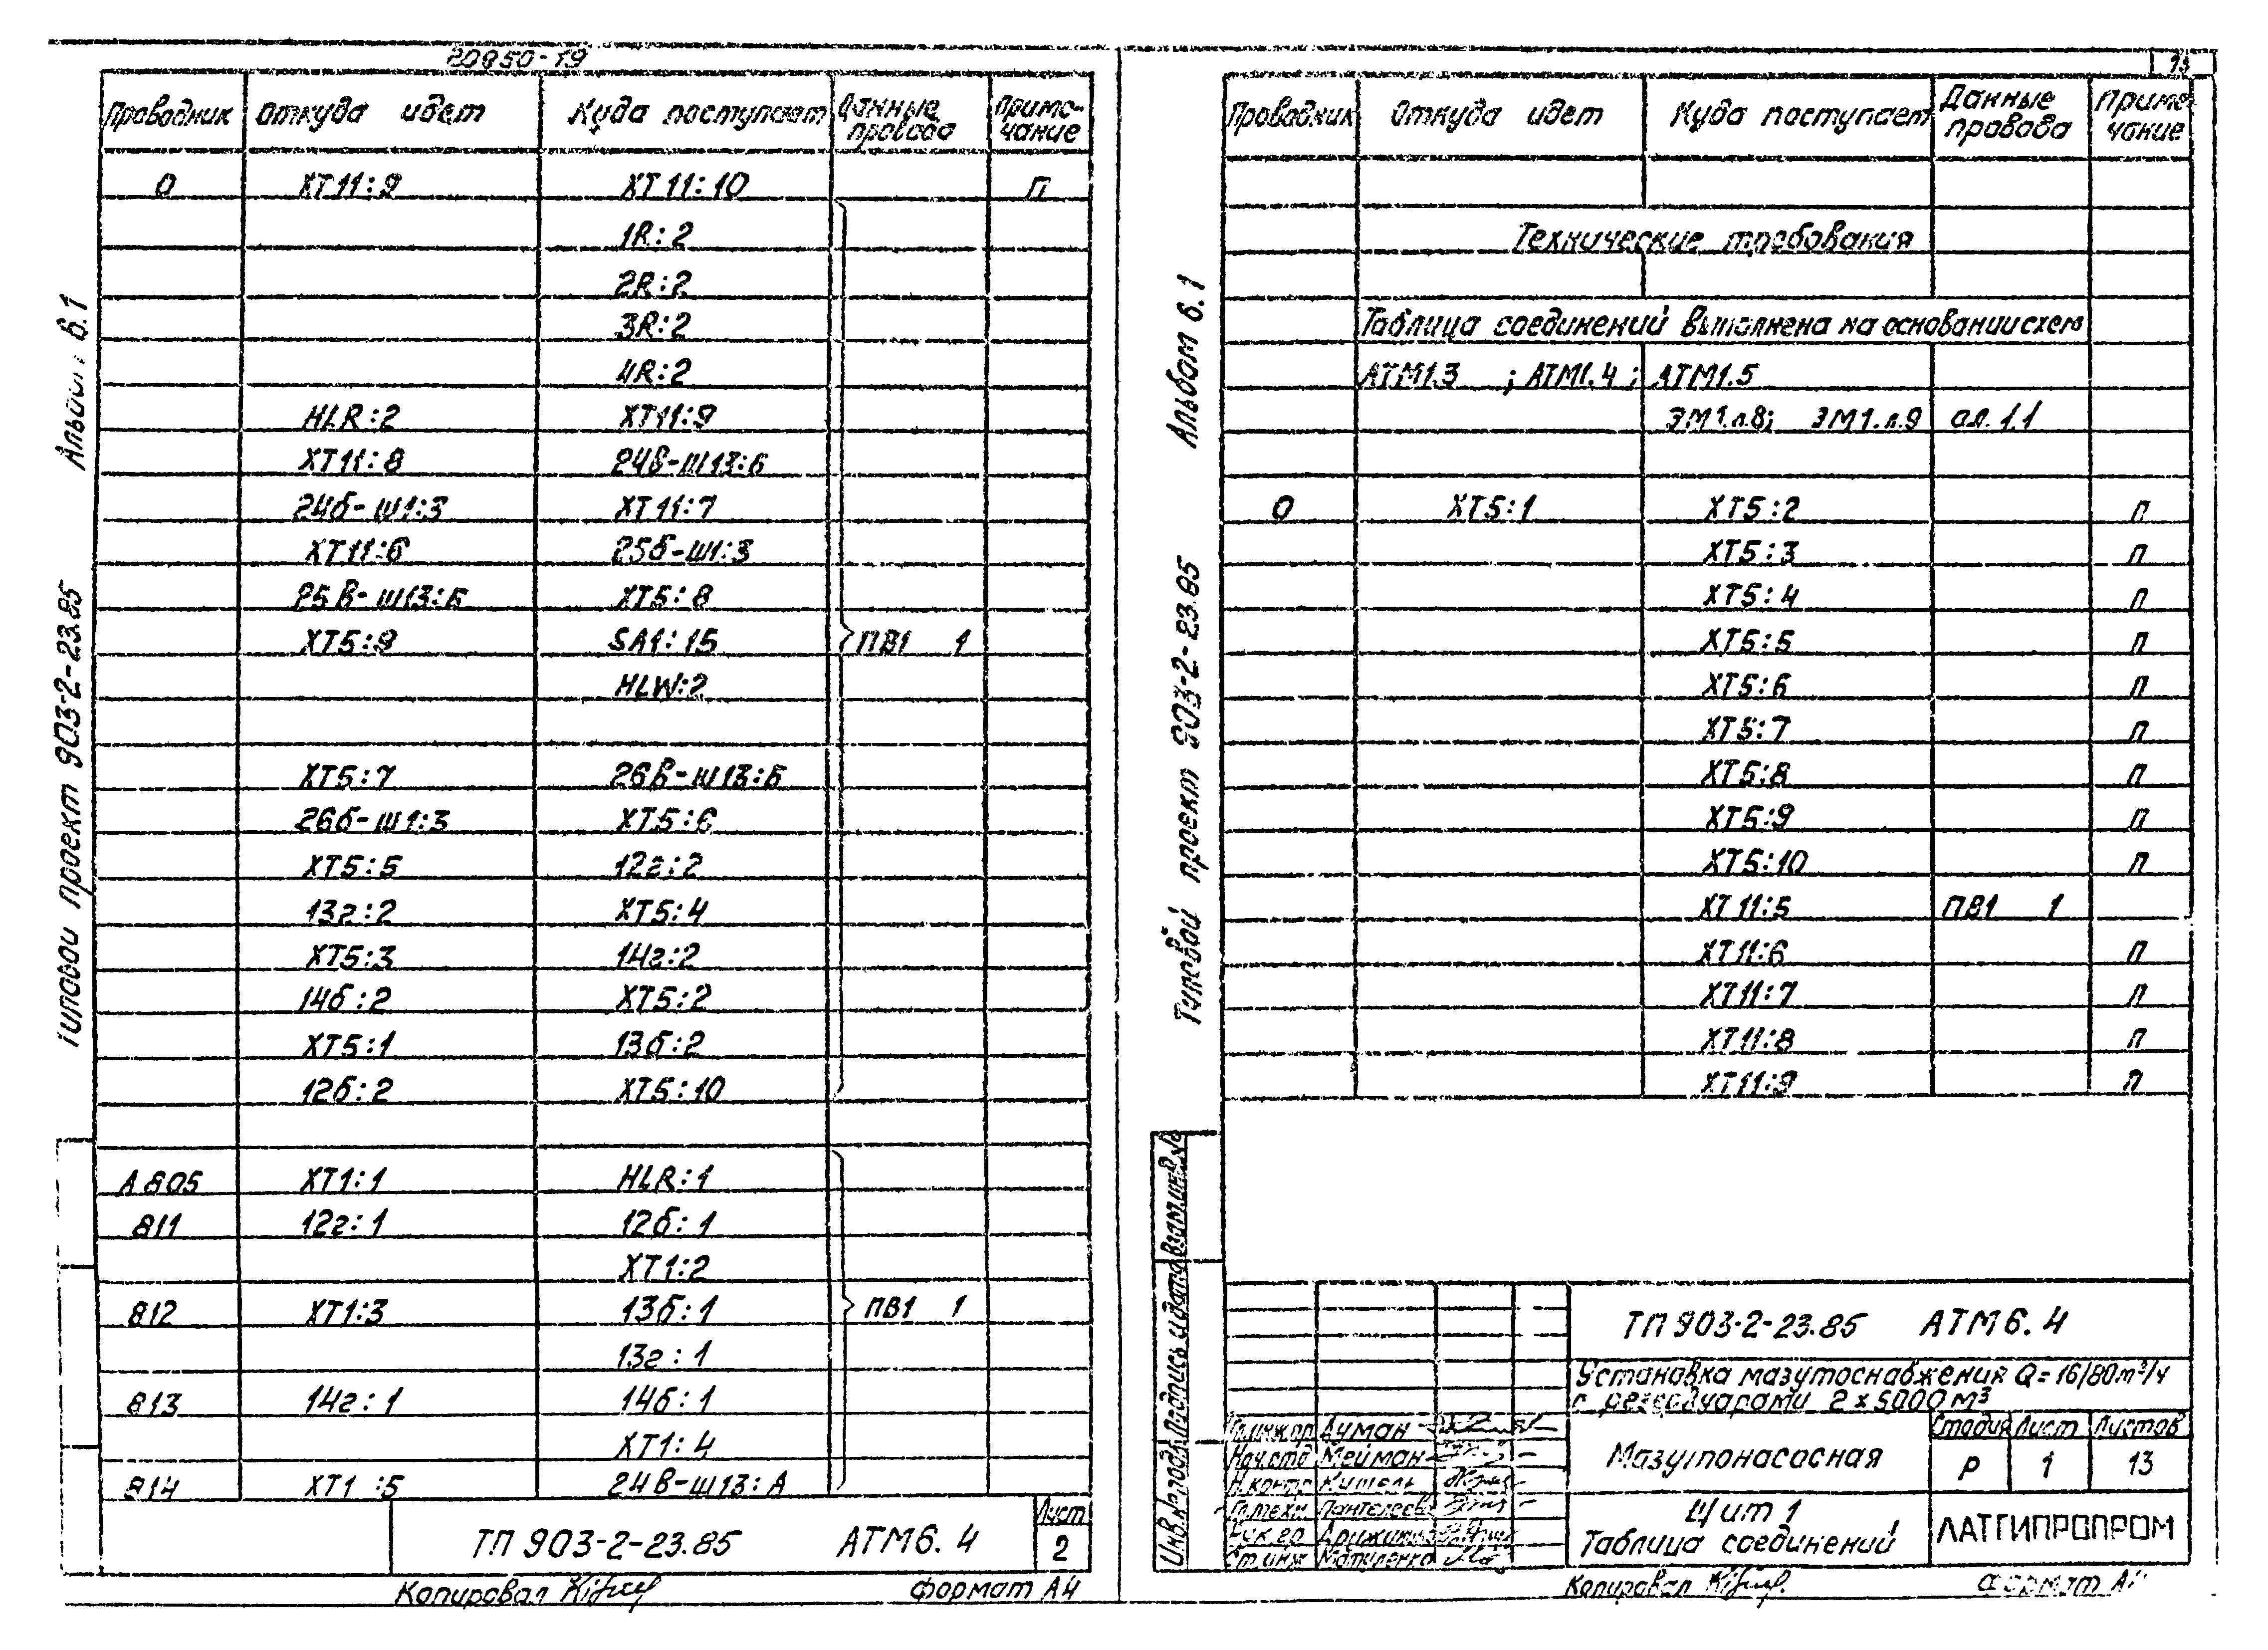 20850-19
Проводник Откуда идет Куда поступает Данные провода Приме-чание
0 ХТ11:9 ХТ11:10 П
1R:2
2R:2
3R:2
4R:2
HLR:2 ХТ11:9
ХТ11:8 24в-Ш13:Б
24б-Ш1:3 ХТ11:7
ХТ11:6 25б-Ш1:3
25в-Ш13:Б ХТ5:8
ХТ5:9 SA1:15 ПВ1 1
HLW:2
ХТ5:7 26в-Ш13:Б
26б-Ш1:3 ХТ5:6
ХТ5:5 12г:2
13г:2 ХТ5:4
ХТ5:3 14г:2
14б:2 ХТ5:2
ХТ5:1 13б:2
12б:2 ХТ5:10
А805 ХТ1:1 HLR:1
811 12г:1 12б:1
ХТ1:2
812 ХТ1:3 13б:1 ПВ1 1
13г:1
813 14г:1 14б:1
ХТ1:4
814 ХТ1:5 24в-Ш13:А
ТП 903-2-23.85 АТМ6.4
Лист
2
Копировал
Формат А4
Альбом 6.1
Типовой проект 903-2-23.85
Проводник Откуда идет Куда поступает Данные провода Приме чание
Технические требования
Таблица соединений выполнена на основании схем
АТМ1.3 ; АТМ1.4 ; АТМ1.5
ЭМ1.л.8; ЭМ1.л.9 ал. 1.1
0 ХТ5:1 ХТ5:2 П
ХТ5:3 П
ХТ5:4 П
ХТ5:5 П
ХТ5:6 П
ХТ5:7 П
ХТ5:8 П
ХТ5:9 П
ХТ5:10 П
ХТ11:5 ПВ1 1
ХТ11:6 П
ХТ11:7 П
ХТ11:8 П
ХТ11:9 П
Альбом 6.1
Типовой проект 903-2-23.85
Взам.инв.№
Подпись и дата
Инв.№подл.
ТП 903-2-23.85 АТМ6.4
Установка мазутоснабжения Q=16/80м³/ч
с резервуарами 2х5000м³
Гл.инж.пр. Ауман
Нач.отд Мейман
Н.контр. Кишель
Гл.техн. Пантелеев
Рук.гр.
Ст.инж.
Мазутонасосная
Стадия Лист Листов
Р 1 13
Щит 1
Таблица соединений
ЛАТГИПРОПРОМ
Копировал
Формат А4